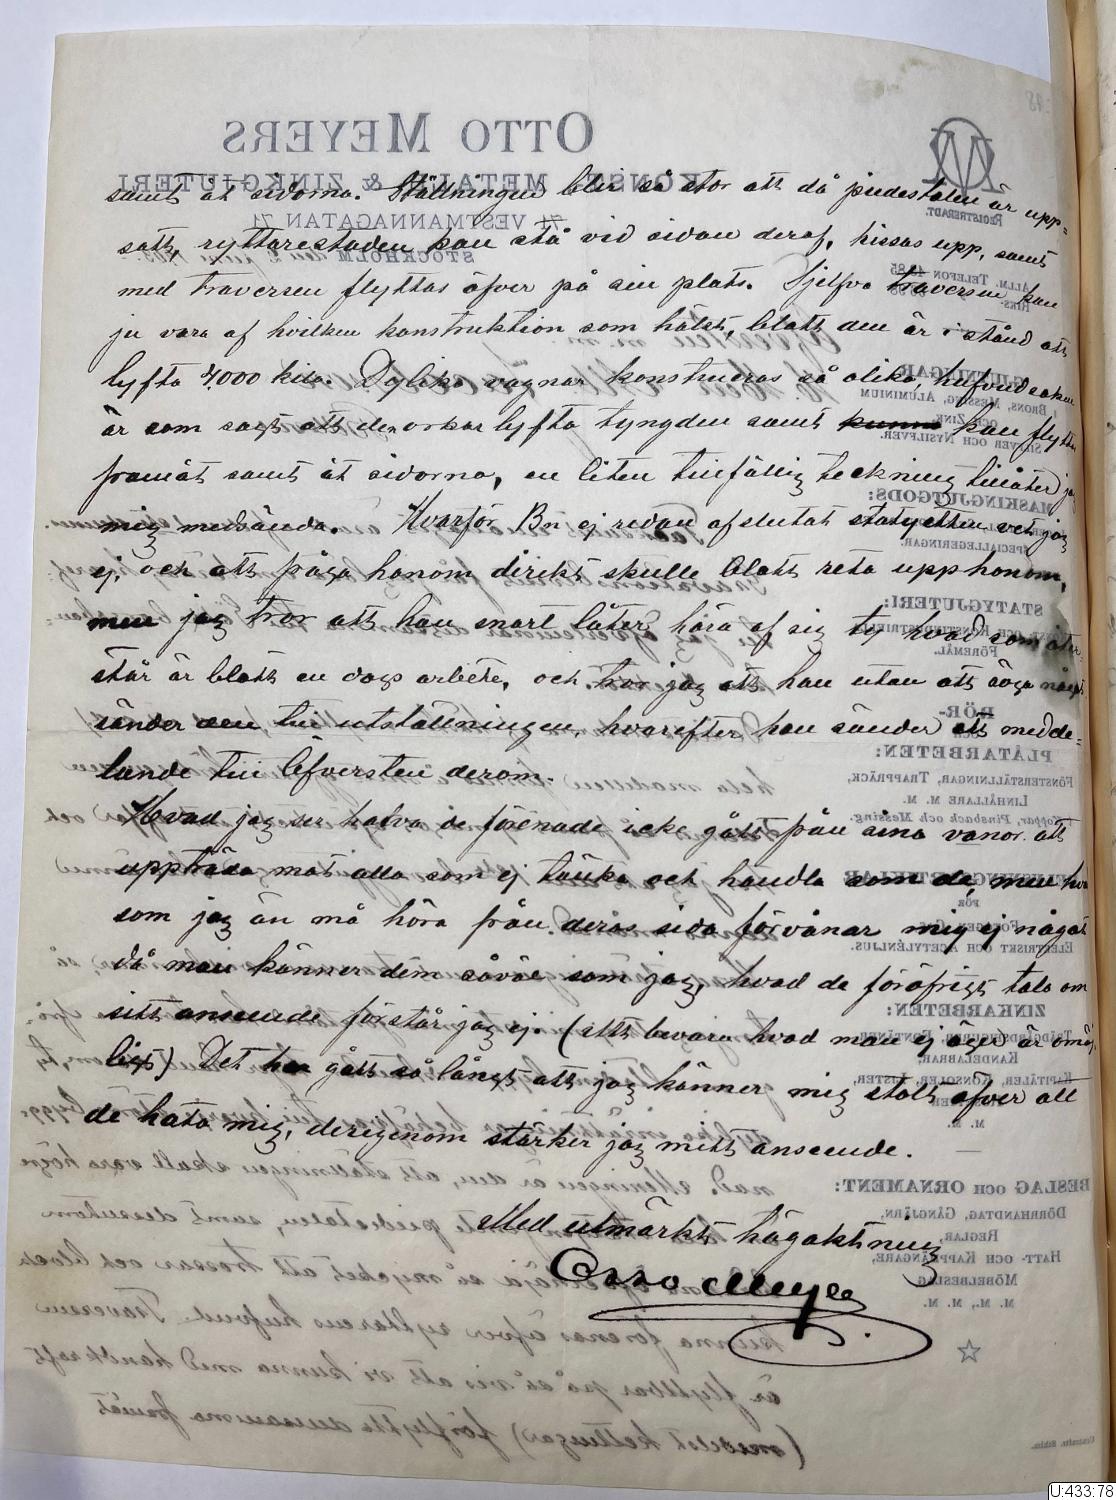 samt åt sidorna. Ställningen blir så stor att då piedestalen är upp=
satt, ryttarestaden kan stå vid sidan deraf, hissas upp, samt
med traversen flyttas öfver på sin plats. Sjelfva traversen kan
ju vara af hvilken konstruktion som hälst, blott den är i stånd att
lyfta 4,000 kilo. Dylika vagnar konstrueras så olika, hufvudsaken
är som sagt att den orkar lyfta tyngden samt kan flyttas
framåt samt åt sidorna, en liten tillfällig teckning tillåter jag
mig medsända. Hvarför Bn ej redan afslutat statyetten vet jag
ej, och att fråga honom direkt skulle blott reta upp honom,
men jag tror att han snart låter höra af sig ty hvad som åter=
står är blott en dags arbete, och tror jag att han utan att säga något
sänder den till utställningen, hvarefter han sänder ett medde=
lande till Öfversten derom.
Hvad jag ser hafva de förenade icke gått från sina vanor att
uppträda mot alla som ej tänka och handla som de, men hva
som jag än må höra från deras sida förvånar mig ej något
då man känner dem såväl som jag, hvad de föröfrigt tala om
sitt anseende förstår jag ej. (att bevara hvad man ej äger är omöj
ligt) Det har gått så långt att jag känner mig stolt öfver att
de hata mig, derigenom stärker jag mitt anseende.
Med utmärkt högaktning
Otto Meyer
OTTO MEYERS
KONST- METALL- & ZINKGJUTERI
71 VESTMANNAGATAN 71
STOCKHOLM
REGISTRERADT.
ALLM. TELEFON
RIKS-
BRONS, MESSING, ALUMINIUM
OCH ZINK
SILFVER OCH NYSILFVER.
MASKINGJUTGODS:
SPECIALLEGERINGAR.
STATYGJUTERI:
FÖREMÅL.
RÖR-
OCH
PLÅTARBETEN:
FÖNSTERSTÄLLNINGAR, TRAPPRÄCK,
LINHÅLLARE M. M.
Koppar, Pinsbach och Messing.
FÖR
ELECTRISKT OCH ACETYLÉNLJUS.
ZINKARBETEN:
KANDELABRAR,
KAPITÄLER, KONSOLER, LISTER,
M. M.
BESLAG OCH ORNAMENT:
DÖRRHANDTAG, GÅNGJÄRN,
REGLAR,
HATT- OCH KAPPHÄNGARE,
MÖBELBESLAG
M. M., M. M.
U:433:78